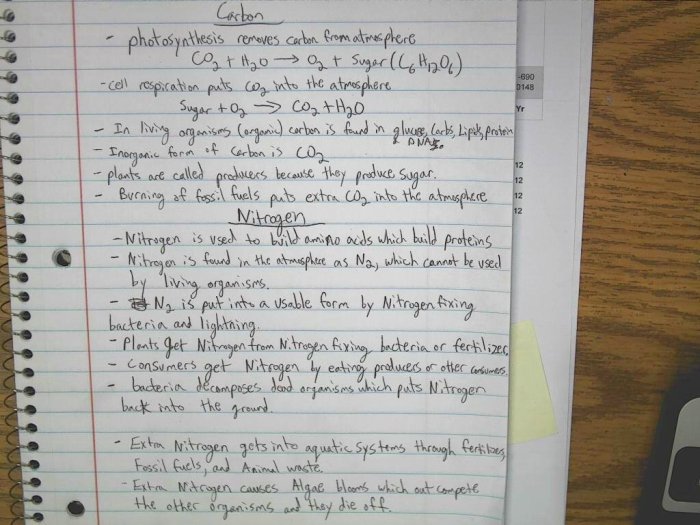 Carbon
- photosynthesis removes carbon from atmosphere
CO2 + H2O → O2 + Sugar (C6H12O6)
- cell respiration puts CO2 into the atmosphere
Sugar + O2 → CO2 + H2O
- In living organisms (organic) carbon is found in glucose, Carbs, Lipids, protein
& DNA
- Inorganic form of Carbon is CO2
- plants are called producers because they produce sugar.
- Burning of fossil fuels puts extra CO2 into the atmosphere
Nitrogen
- Nitrogen is used to build amino acids which build proteins
- Nitrogen is found in the atmosphere as N2, which cannot be used
by living organisms.
- N2 is put into a usable form by Nitrogen fixing
bacteria and lightning.
- Plants get Nitrogen from Nitrogen fixing bacteria or fertilizer.
- Consumers get Nitrogen by eating producers or other consumers.
- bacteria decomposes dead organisms which puts Nitrogen
back into the ground.
- Extra Nitrogen gets into aquatic systems through fertilizers,
Fossil fuels, and Animal waste.
- Extra Nitrogen causes Algae blooms which out compete
the other organisms and they die off.
-690
0148
Yr
12
12
12
12